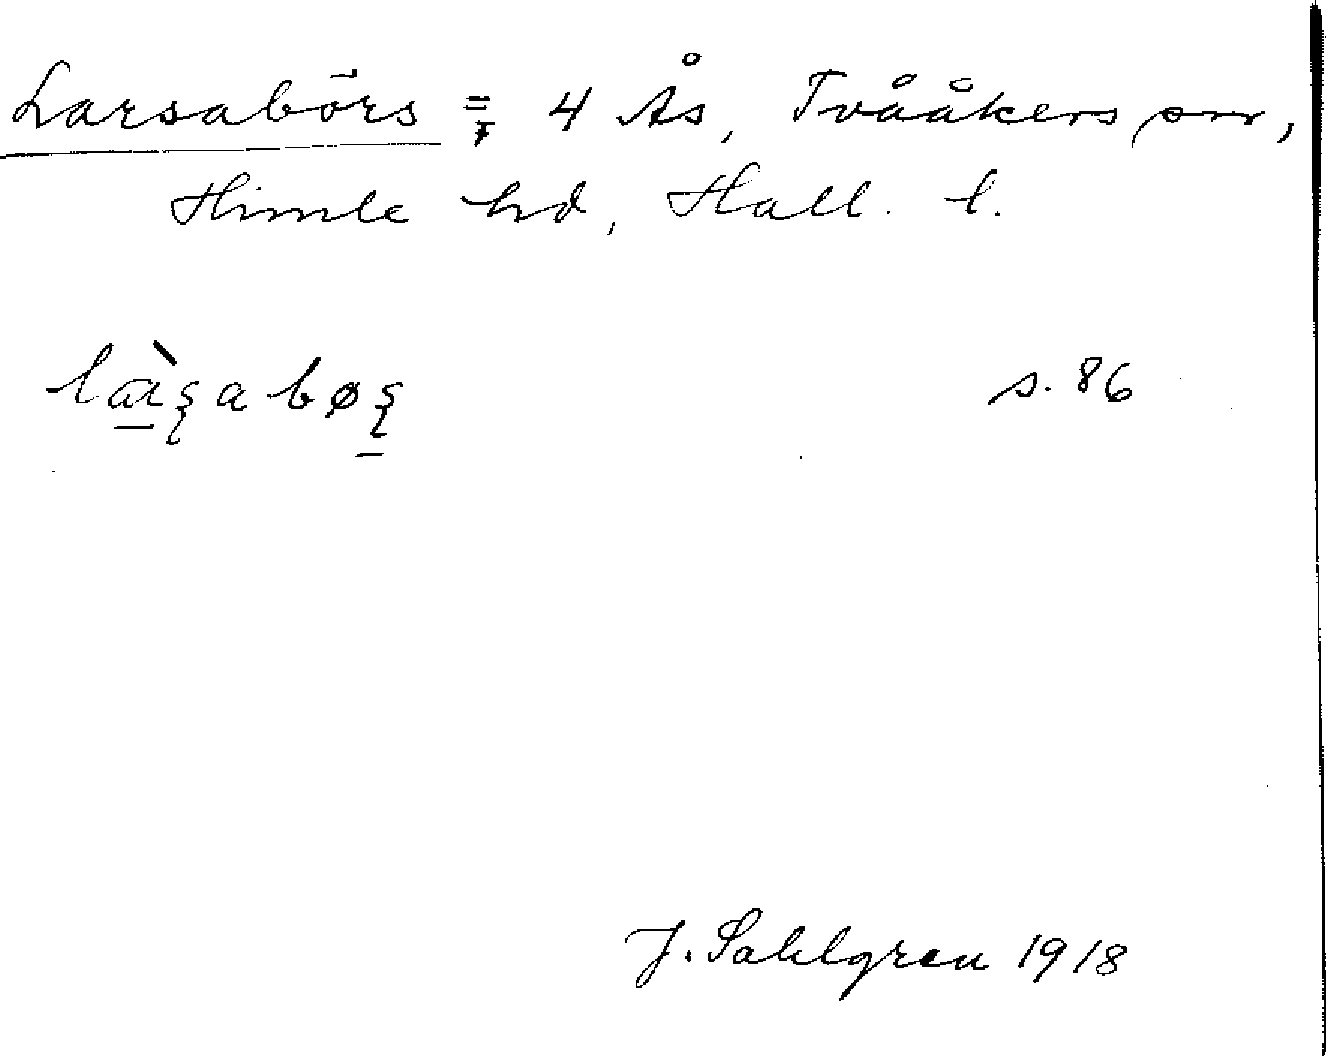 Larsabörs = 4 Ås, Tvååkers sn,
Himle hd, Hall. l.
s. 86
J. Sahlgren 1918